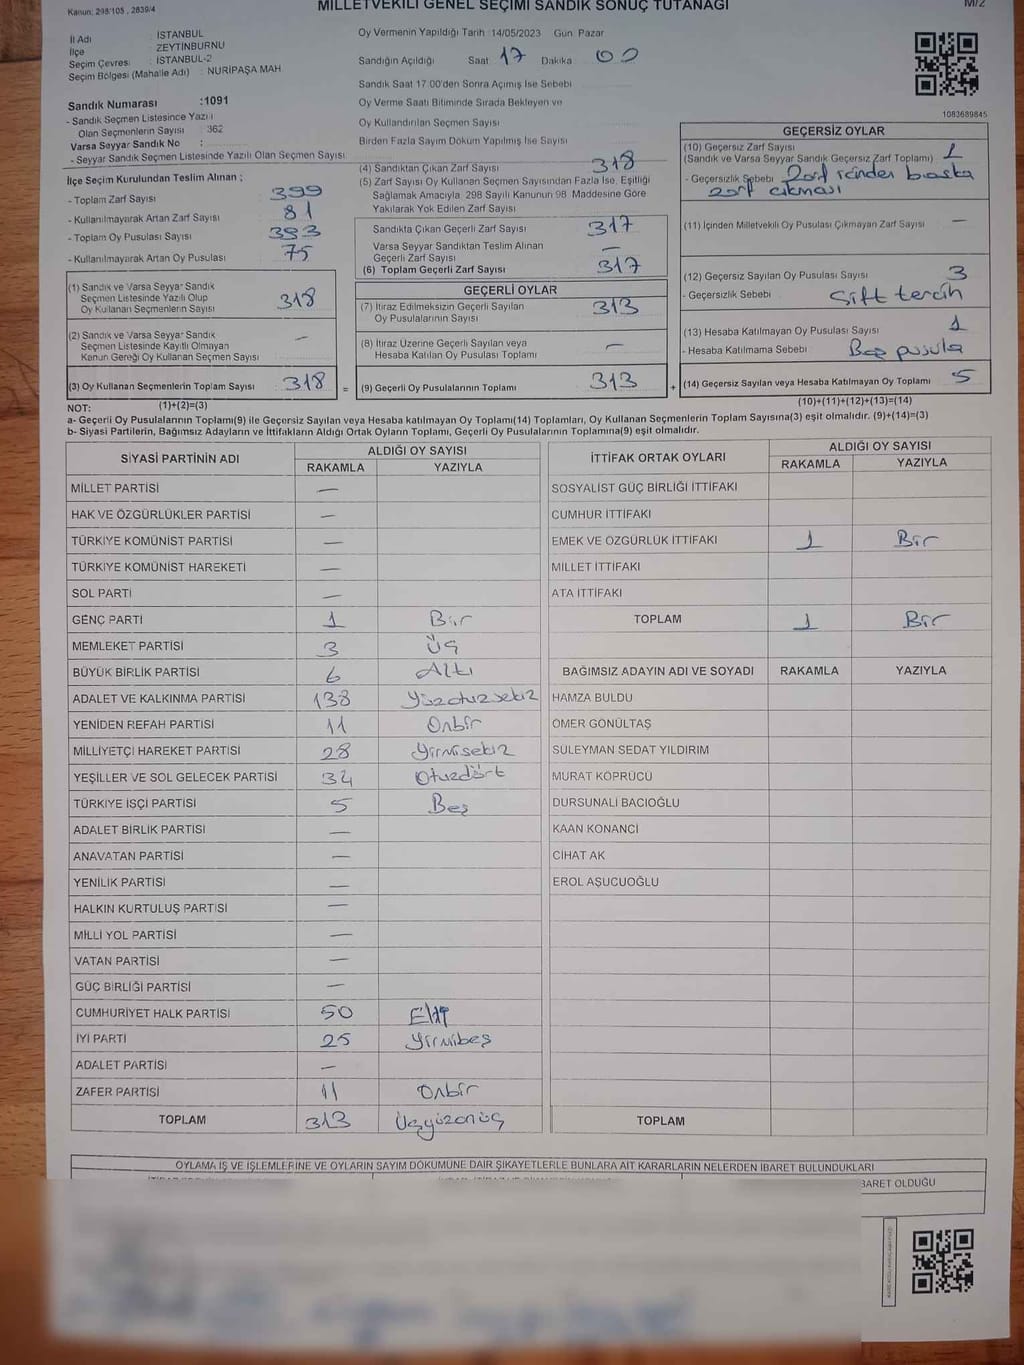 Kanun: 298/105 , 2839/4
MİLLETVEKİLİ GENEL SEÇİMİ SANDIK SONUÇ TUTANAĞI
M/2
İl Adı : İSTANBUL
İlçe : ZEYTİNBURNU
Seçim Çevresi : İSTANBUL-2
Seçim Bölgesi (Mahalle Adı) : NURİPAŞA MAH
Sandık Numarası :1091
- Sandık Seçmen Listesince Yazılı
Olan Seçmenlerin Sayısı : 362
Varsa Seyyar Sandık No :
- Seyyar Sandık Seçmen Listesinde Yazılı Olan Seçmen Sayısı
İlçe Seçim Kurulundan Teslim Alınan ;
- Toplam Zarf Sayısı 399
- Kullanılmayarak Artan Zarf Sayısı 81
- Toplam Oy Pusulası Sayısı 393
- Kullanılmayarak Artan Oy Pusulası 75
(1) Sandık ve Varsa Seyyar Sandık
Seçmen Listesinde Yazılı Olup
Oy Kullanan Seçmenlerin Sayısı 318
(2) Sandık ve Varsa Seyyar Sandık
Seçmen Listesinde Kayıtlı Olmayan
Kanun Gereği Oy Kullanan Seçmen Sayısı —
(3) Oy Kullanan Seçmenlerin Toplam Sayısı 318 =
(1)+(2)=(3)
Oy Vermenin Yapıldığı Tarih : 14/05/2023 Gün: Pazar
Sandığın Açıldığı Saat: 17 Dakika 00
Sandık Saat 17.00'den Sonra Açılmış İse Sebebi
Oy Verme Saati Bitiminde Sırada Bekleyen ve
Oy Kullandırılan Seçmen Sayısı
Birden Fazla Sayım Döküm Yapılmış İse Sayısı
(4) Sandıktan Çıkan Zarf Sayısı 318
(5) Zarf Sayısı Oy Kullanan Seçmen Sayısından Fazla İse, Eşitliği
Sağlamak Amacıyla, 298 Sayılı Kanunun 98. Maddesine Göre
Yakılarak Yok Edilen Zarf Sayısı
Sandıkta Çıkan Geçerli Zarf Sayısı 317
Varsa Seyyar Sandıktan Teslim Alınan
Geçerli Zarf Sayısı —
(6) Toplam Geçerli Zarf Sayısı 317
GEÇERLİ OYLAR
(7) İtiraz Edilmeksizin Geçerli Sayılan
Oy Pusulalarının Sayısı 313
(8) İtiraz Üzerine Geçerli Sayılan veya
Hesaba Katılan Oy Pusulası Toplamı —
(9) Geçerli Oy Pusulalarının Toplamı 313 +
1083689845
GEÇERSİZ OYLAR
(10) Geçersiz Zarf Sayısı 1
(Sandık ve Varsa Seyyar Sandık Geçersiz Zarf Toplamı)
- Geçersizlik Sebebi Zarf içinden başka
zarf çıkması
(11) İçinden Milletvekili Oy Pusulası Çıkmayan Zarf Sayısı —
(12) Geçersiz Sayılan Oy Pusulası Sayısı 3
- Geçersizlik Sebebi Çift tercih
(13) Hesaba Katılmayan Oy Pusulası Sayısı 1
- Hesaba Katılmama Sebebi Boş pusula
(14) Geçersiz Sayılan veya Hesaba Katılmayan Oy Toplamı 5
(10)+(11)+(12)+(13)=(14)
NOT:
a- Geçerli Oy Pusulalarının Toplamı(9) ile Geçersiz Sayılan veya Hesaba katılmayan Oy Toplamı(14) Toplamları, Oy Kullanan Seçmenlerin Toplam Sayısına(3) eşit olmalıdır. (9)+(14)=(3)
b- Siyasi Partilerin, Bağımsız Adayların ve İttifakların Aldığı Ortak Oyların Toplamı, Geçerli Oy Pusulalarının Toplamına(9) eşit olmalıdır.
SİYASİ PARTİNİN ADI ALDIĞI OY SAYISI
RAKAMLA YAZIYLA
MİLLET PARTİSİ —
HAK VE ÖZGÜRLÜKLER PARTİSİ —
TÜRKİYE KOMÜNİST PARTİSİ —
TÜRKİYE KOMÜNİST HAREKETİ —
SOL PARTİ —
GENÇ PARTİ 1 Bir
MEMLEKET PARTİSİ 3 Üç
BÜYÜK BİRLİK PARTİSİ 6 Altı
ADALET VE KALKINMA PARTİSİ 138 Yüzotuzsekiz
YENİDEN REFAH PARTİSİ 11 Onbir
MİLLİYETÇİ HAREKET PARTİSİ 28 Yirmisekiz
YEŞİLLER VE SOL GELECEK PARTİSİ 34 Otuzdört
TÜRKİYE İŞÇİ PARTİSİ 5 Beş
ADALET BİRLİK PARTİSİ —
ANAVATAN PARTİSİ —
YENİLİK PARTİSİ —
HALKIN KURTULUŞ PARTİSİ —
MİLLİ YOL PARTİSİ —
VATAN PARTİSİ —
GÜÇ BİRLİĞİ PARTİSİ —
CUMHURİYET HALK PARTİSİ 50 Elli
İYİ PARTİ 25 Yirmibeş
ADALET PARTİSİ —
ZAFER PARTİSİ 11 Onbir
TOPLAM 313 Üçyüzonüç
İTTİFAK ORTAK OYLARI ALDIĞI OY SAYISI
RAKAMLA YAZIYLA
SOSYALİST GÜÇ BİRLİĞİ İTTİFAKI
CUMHUR İTTİFAKI
EMEK VE ÖZGÜRLÜK İTTİFAKI 1 Bir
MİLLET İTTİFAKI
ATA İTTİFAKI
TOPLAM 1 Bir
BAĞIMSIZ ADAYIN ADI VE SOYADI RAKAMLA YAZIYLA
HAMZA BULDU
ÖMER GÖNÜLTAŞ
SÜLEYMAN SEDAT YILDIRIM
MURAT KÖPRÜCÜ
DURSUNALİ BACIOĞLU
KAAN KONANCİ
CİHAT AK
EROL AŞUCUOĞLU
TOPLAM
OYLAMA İŞ VE İŞLEMLERİNE VE OYLARIN SAYIM DÖKÜMÜNE DAİR ŞİKAYETLERLE BUNLARA AİT KARARLARIN NELERDEN İBARET BULUNDUKLARI
BARET OLDUĞU